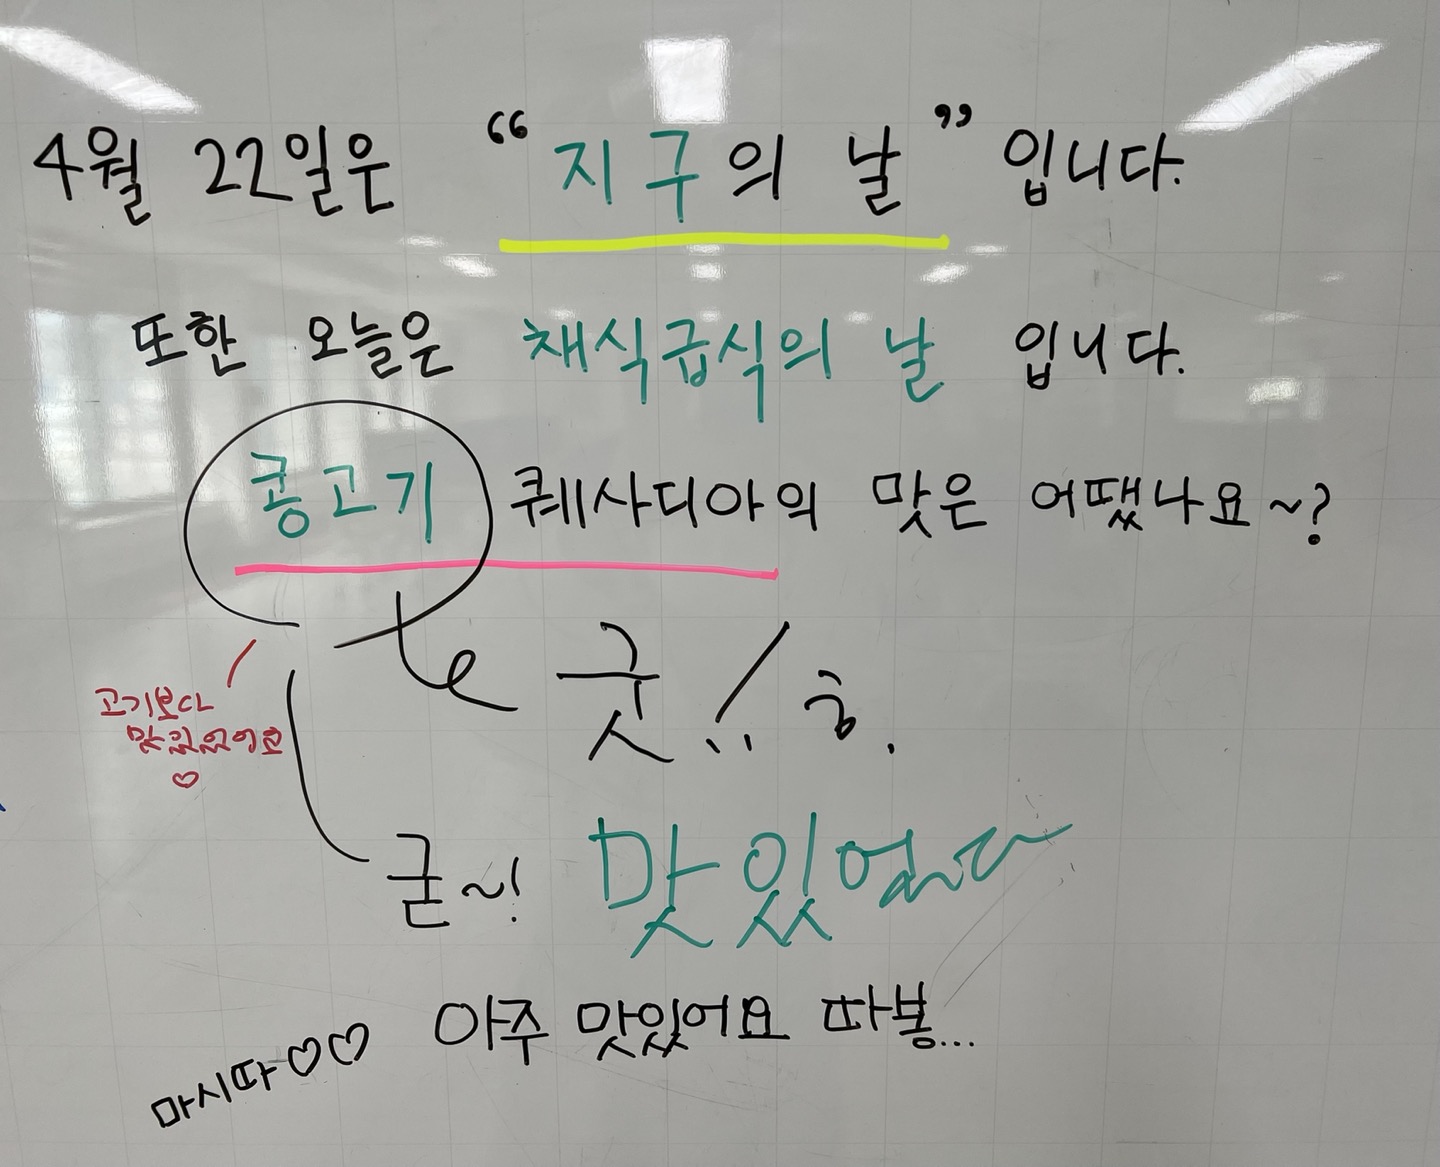 4월 22일은 “지구의 날” 입니다.
또한 오늘은 채식급식의 날 입니다.
콩고기 퀘사디아의 맛은 어땠나요~?
굿!
고기보다
맛있었어요
♡
굳~!
맛있었다
아주 맛있어요 따봉...
마시따♡♡